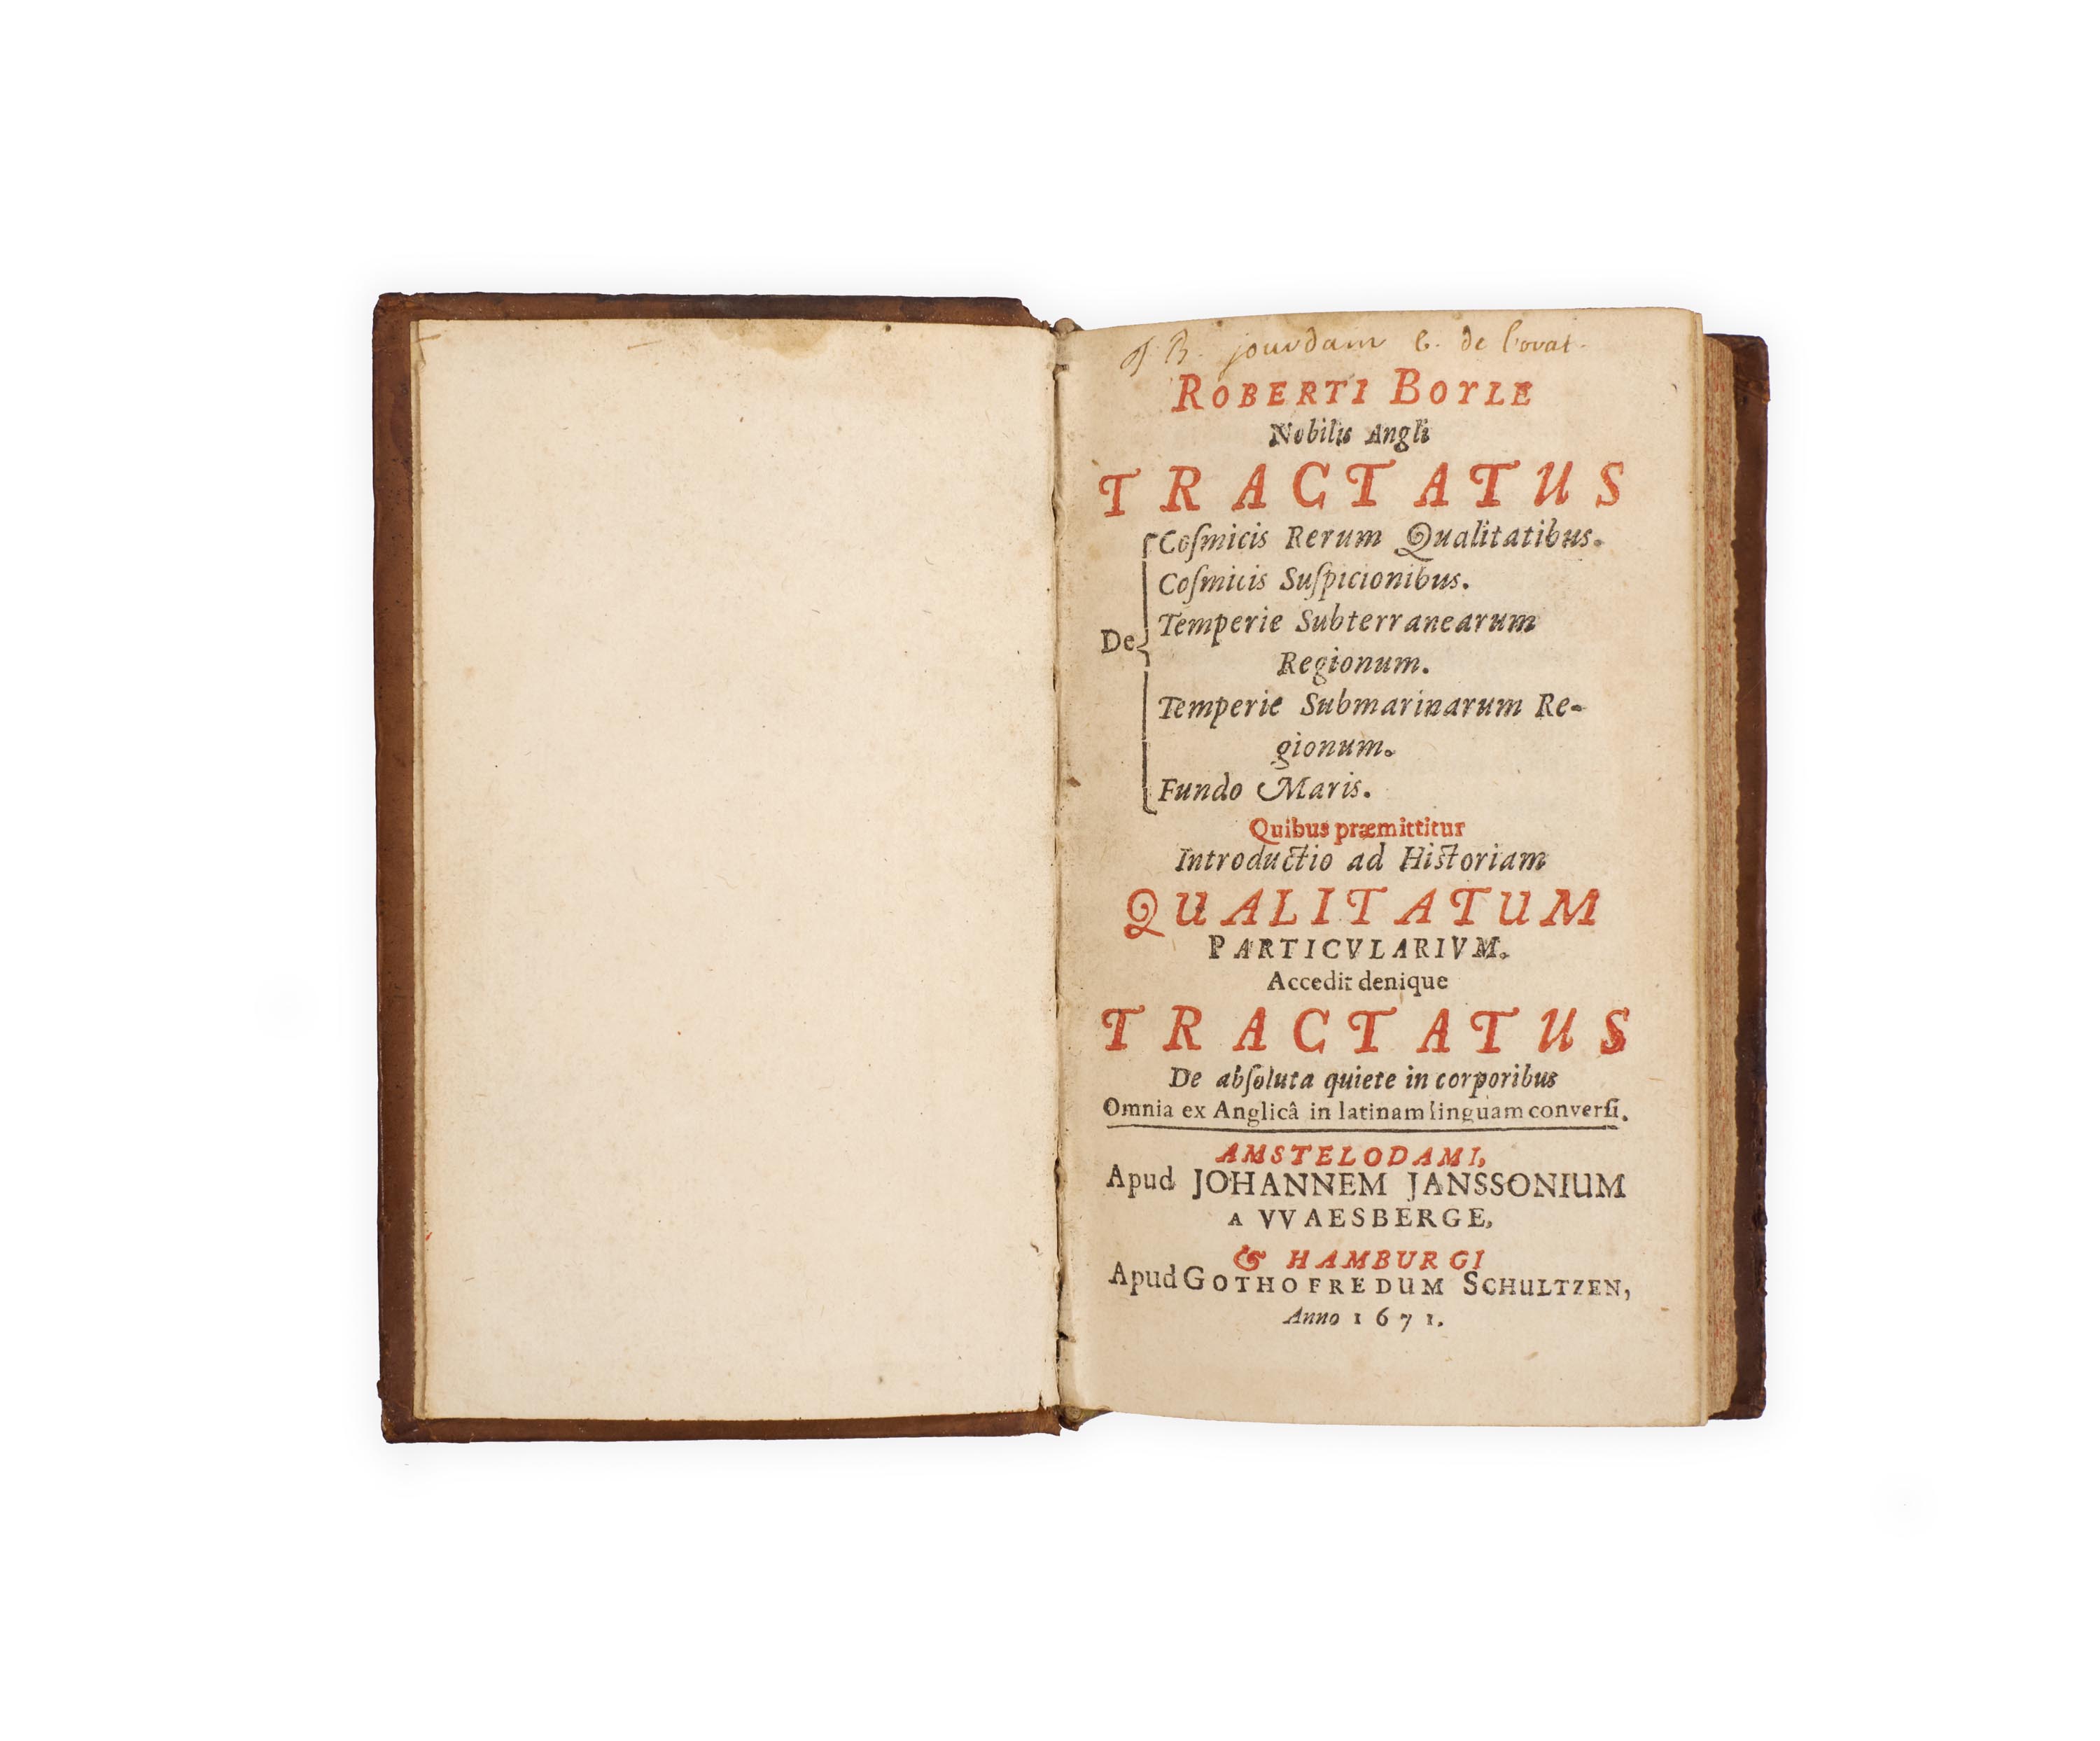 J. B. jourdam C. de
ROBERTI BOYLE
Nobilis Angli
TRACTATUS
Coſmicis Rerum Qualitatibus.
Coſmicis Suſpicionibus.
Temperie Subterranearum
De
Regionum.
Temperie Submarinarum Re-
gionum.
Fundo Maris.
Quibus præmittitur
Introductio ad Historiam
QUALITATUM
PARTICVLARIVM.
Accedit denique
TRACTATUS
De abſoluta quiete in corporibus
Omnia ex Anglicâ in latinam linguam converſi.
AMSTELODAMI,
Apud JOHANNEM JANSSONIUM
A VVAESBERGE,
& HAMBURGI
Apud GOTHOFREDUM SCHULTZEN,
Anno 1671.